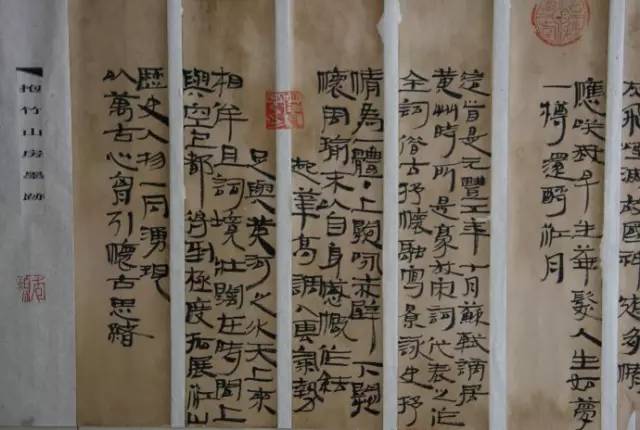 灰飛煙滅故國神遊多情
應笑我早生華髮人生如夢
一樽還酹江月
這首是元豐五年十月蘇軾謫居
黃州時所是豪放詞代表之作
全詞借古抒懷融寫景詠史抒
情為一體·上闋詠赤壁下闋
懷周瑜末以自身感慨作結
起筆高調入雲氣勢
足與黃河之水天上來
相牟且詞境壯闊在時間上
與空上都得到極度拓展江山
歷史人物一同湧現
以萬古心胸引懷古思緒
抱竹山房墨跡